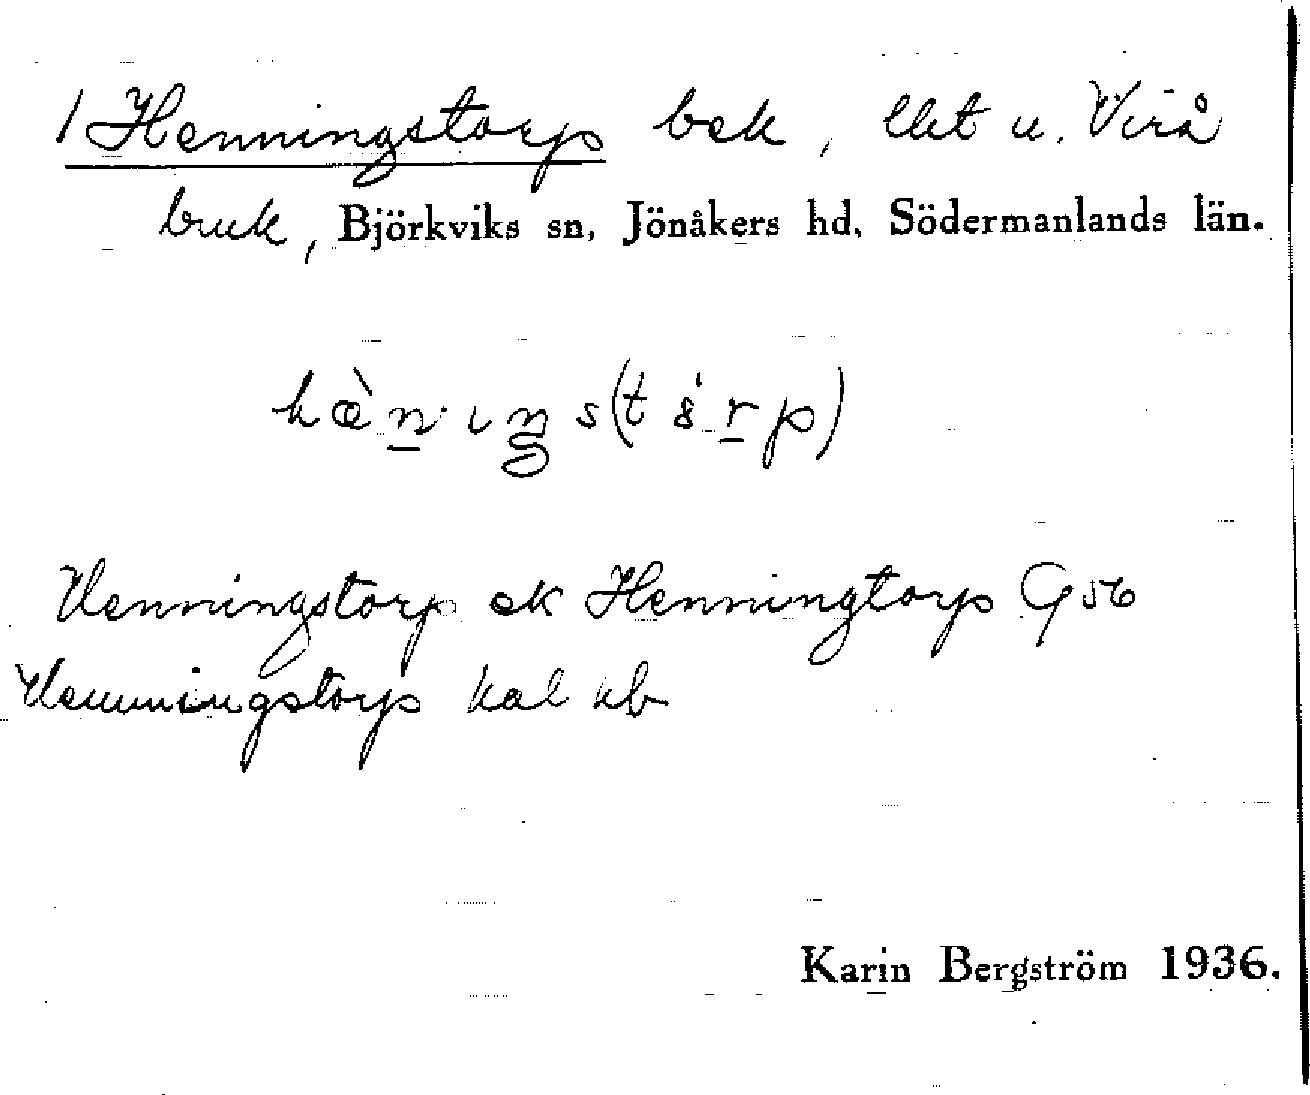 1 Henningstorp bek, llet u. Virå
bruk, Björkviks sn, Jönåkers hd, Södermanlands län.
Henningstorp ek Henningtorp G 56
Henningstorp kal kb
Karin Bergström 1936.